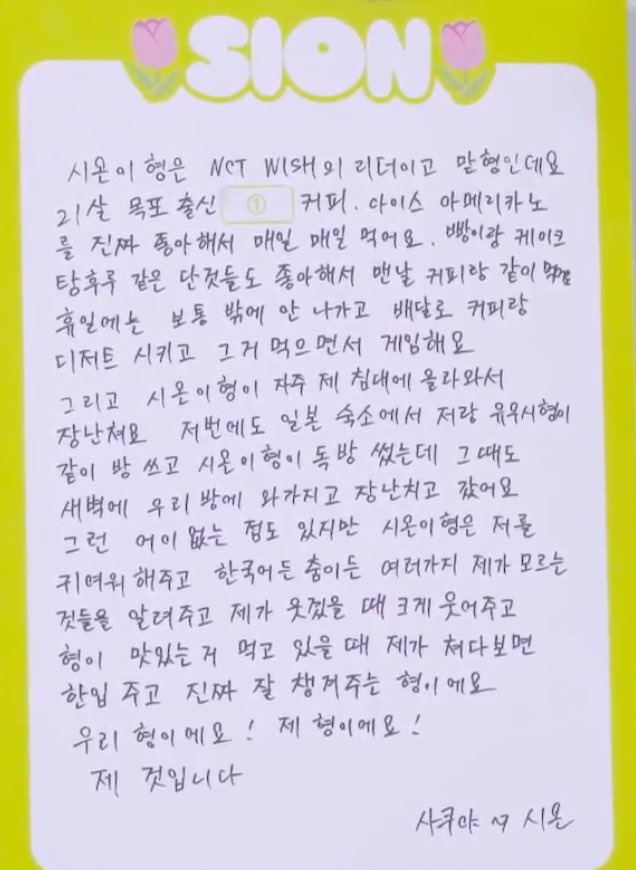 SION
시온이 형은 NCT WISH의 리더이고 맏형인데요
21살 목포 출신 ① 커피. 아이스 아메리카노
를 진짜 좋아해서 매일 매일 먹어요. 빵이랑 케이크
탕후루 같은 단것들도 좋아해서 맨날 커피랑 같이 먹음
휴일에는 보통 밖에 안 나가고 배달로 커피랑
디저트 시키고 그거 먹으면서 게임해요
그리고 시온이형이 자주 제 침대에 올라와서
장난쳐요 저번에도 일본 숙소에서 저랑 유우시형이
같이 방 쓰고 시온이형이 독방 썼는데 그때도
새벽에 우리 방에 와가지고 장난치고 갔어요
그런 어이 없는 점도 있지만 시온이형은 저를
귀여워 해주고 한국어든 춤이든 여러가지 제가 모르는
것들을 알려주고 제가 웃겼을 때 크게 웃어주고
형이 맛있는 거 먹고 있을 때 제가 쳐다보면
한입 주고 진짜 잘 챙겨주는 형이에요
우리 형이에요! 제 형이에요!
제 것입니다
사쿠야 시온